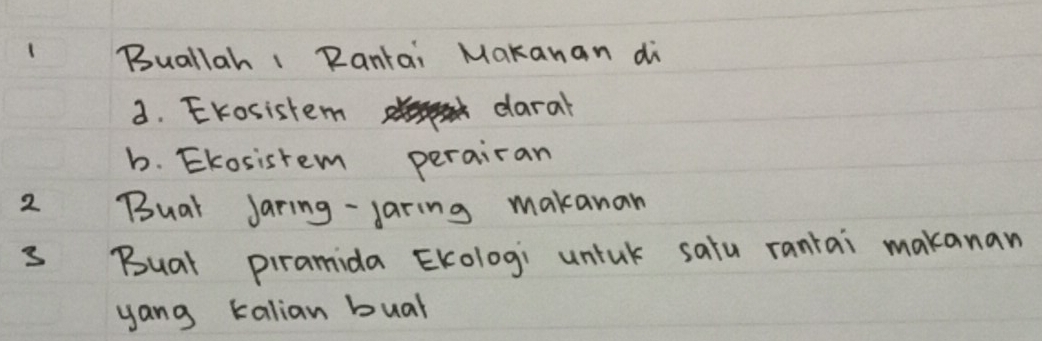 1 Buatlah 1 Rantai Makanan di
a. Ekosistem darat
b. Ekosistem perairan
2 Buat Jaring-jaring makanan
3 Buat piramida Ekologi untuk satu rantai makanan
yang kalian buat